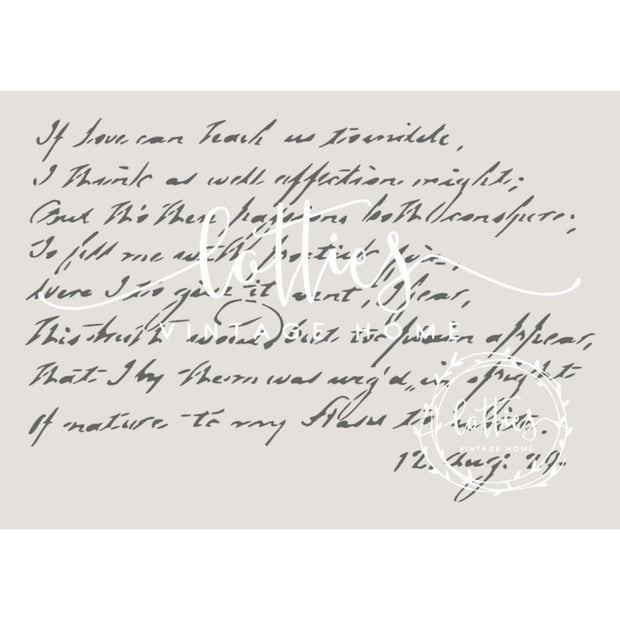 If Love can Teach us to write,
I think as well affection might;
But tho' these passions both conspire;
To fill me with poetick fire,
Were I to give it vent, I fear,
This truth would but too soon appear,
That I by them was urg'd in spight
Of nature to my to
12. Aug: 29.
lotties
VINTAGE HOME
lotties
VINTAGE HOME